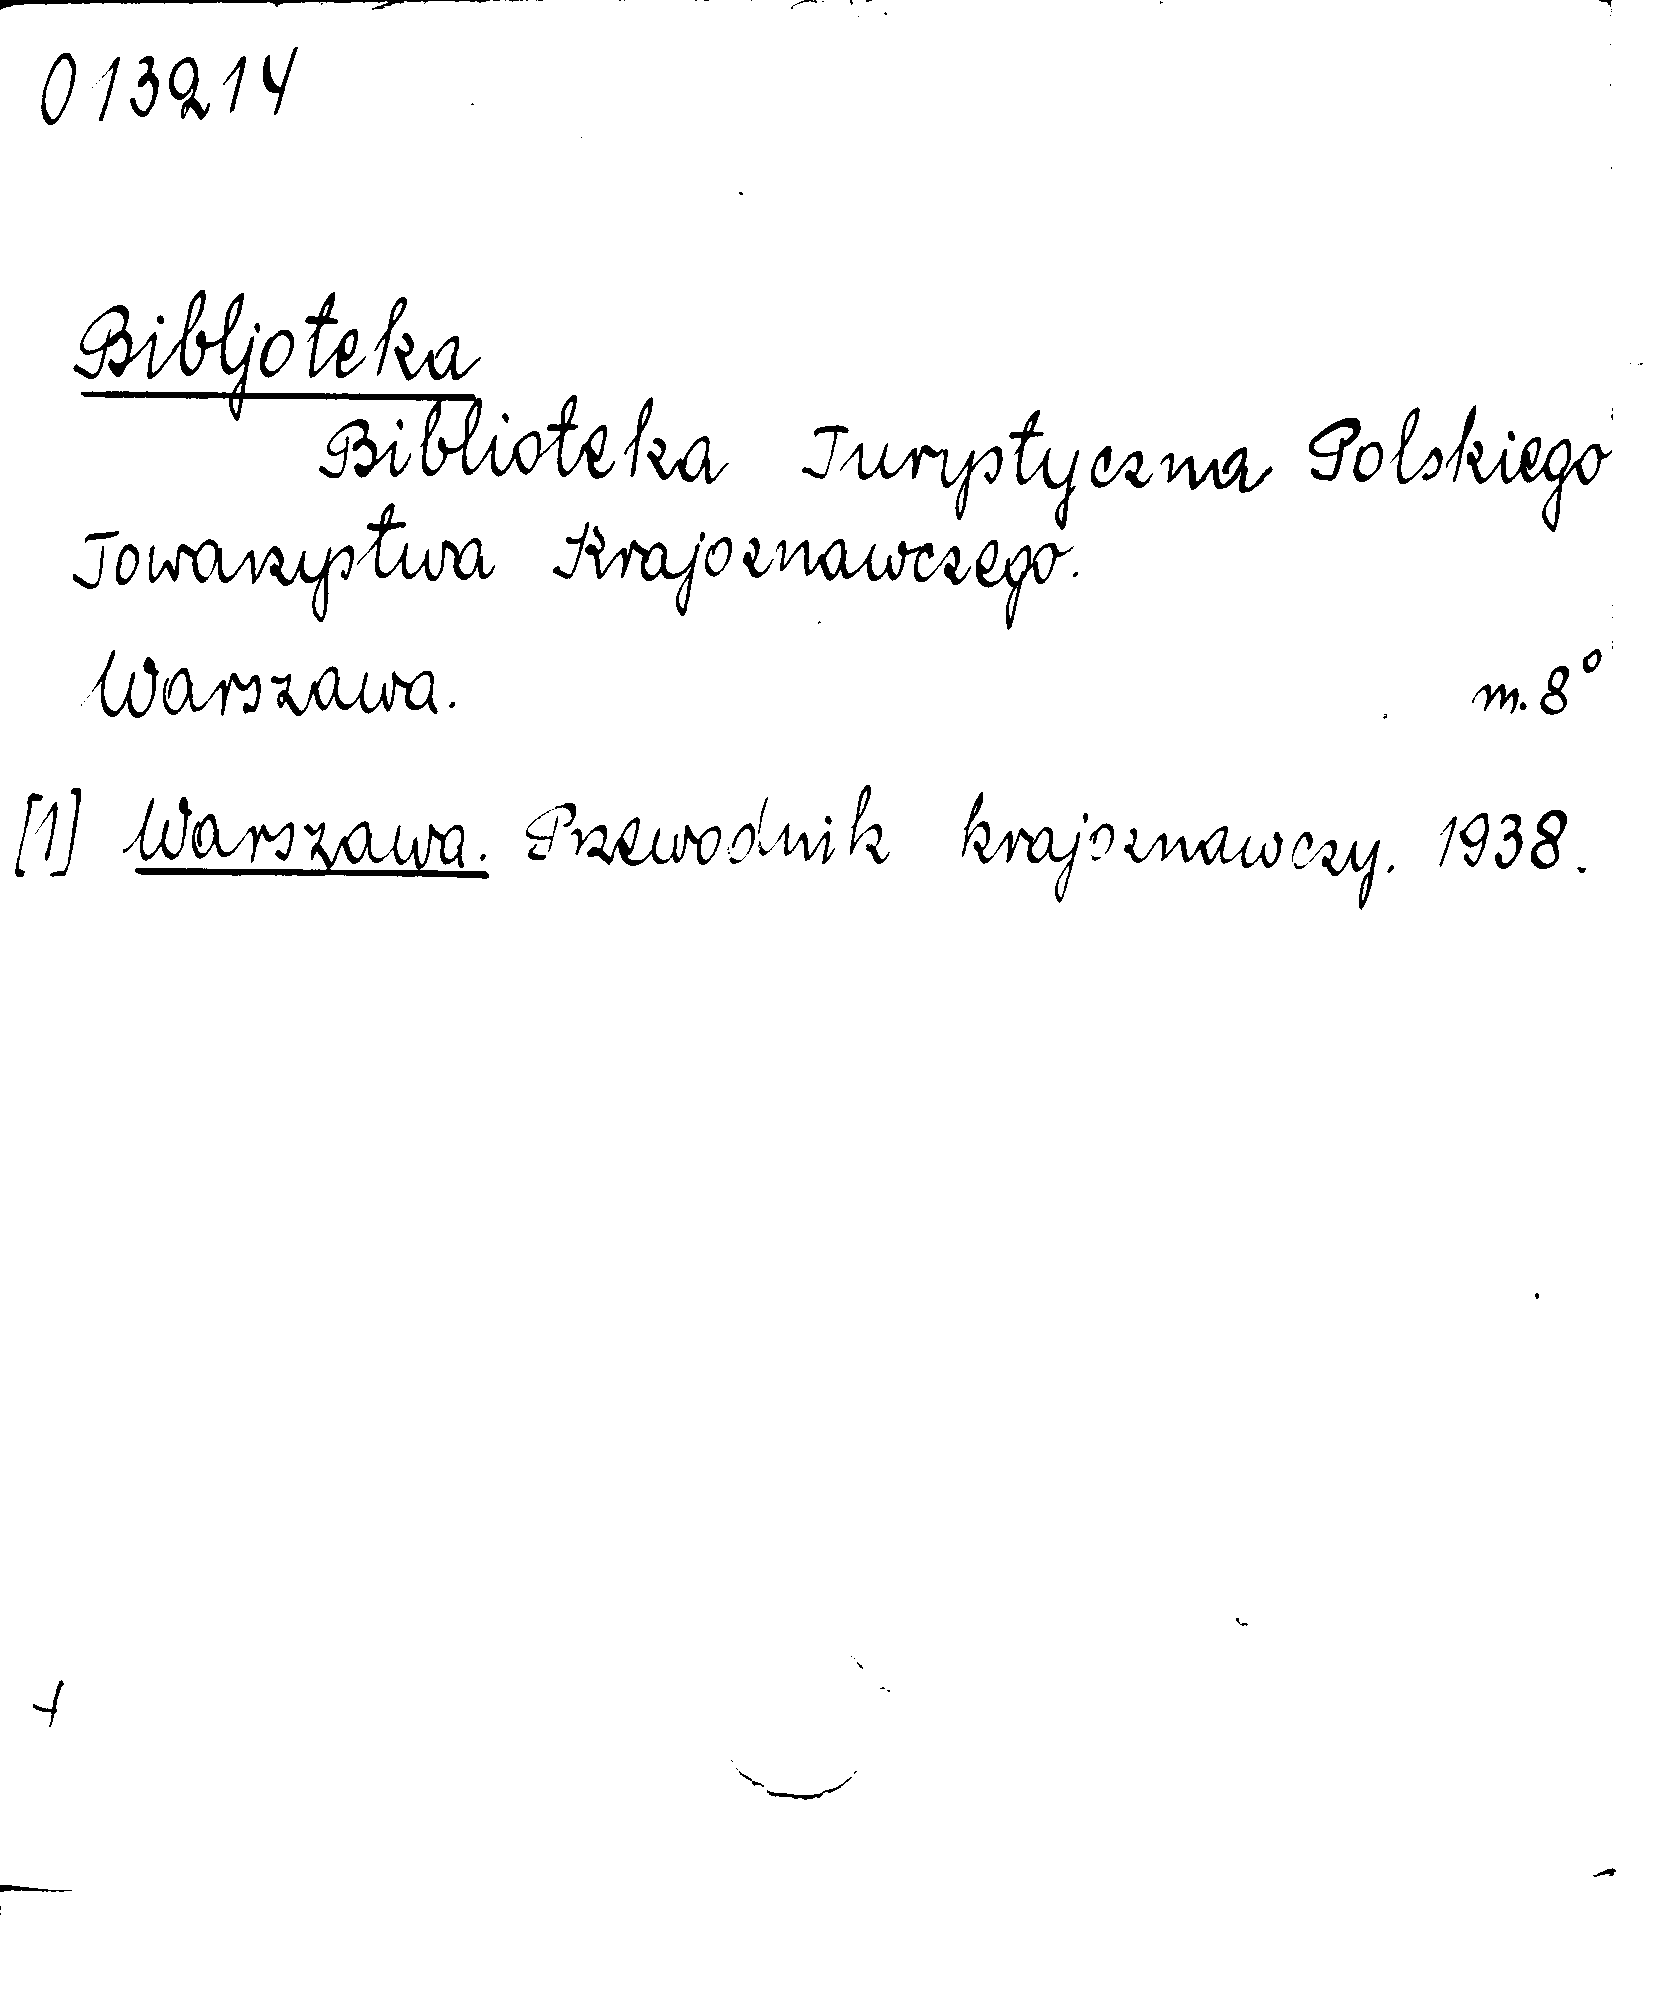 013214
Bibljoteka
Biblioteka Turystyczna Polskiego
Towarzystwa Krajoznawczego.
Warszawa. m. 8°
[1] Warszawa. Przewodnik krajoznawczy. 1938.